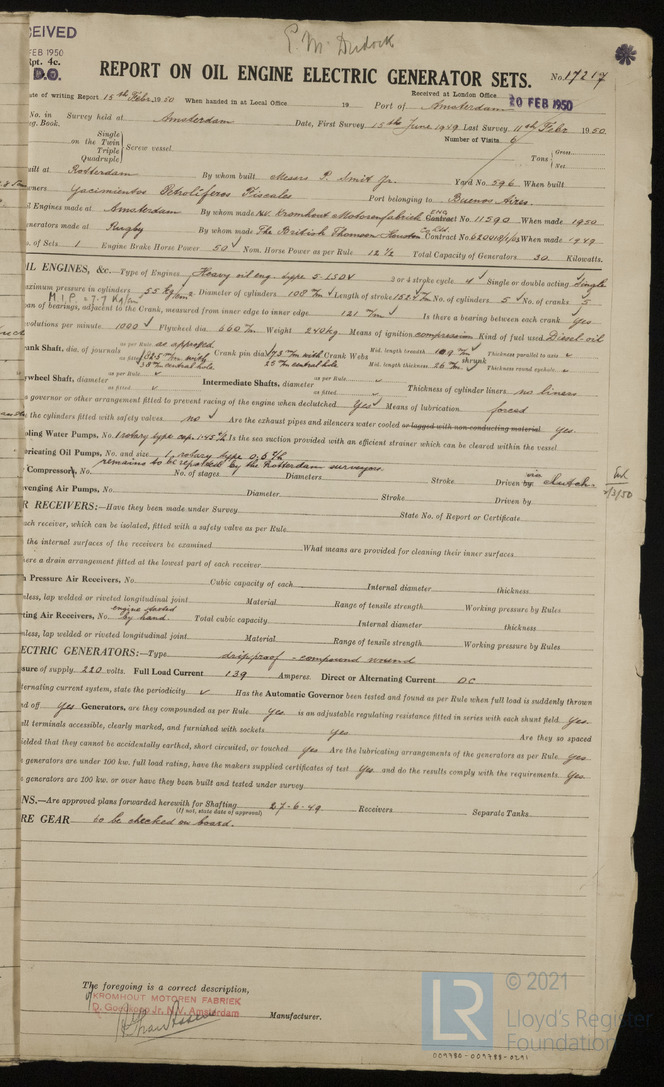 P. M. Dudock
CEIVED
FEB 1950
Rpt. 4c.
D.O.
REPORT ON OIL ENGINE ELECTRIC GENERATOR SETS.
No. 17217
Received at London Office
20 FEB 1950
ate of writing Report 15th Febr. 1950 When handed in at Local Office 19 Port of Amsterdam
No. in Survey held at Amsterdam Date, First Survey 15th June 1949 Last Survey 11th Febr 1950
g. Book. Number of Visits 6
Single
on the Twin
Triple
Quadruple
Screw vessel
Tons Gross
Net
uilt at Rotterdam By whom built Messrs P. Smit Jr. Yard No. 596 When built
wners Yacimientos Petroliferos Fiscales Port belonging to Buenos Aires.
il Engines made at Amsterdam By whom made NV. Kromhout Motorenfabriek Contract No. 11590 When made 1950
enerators made at Rugby By whom made The British Thomson Houston Co Ltd. Contract No. When made 1949
o. of Sets 1 Engine Brake Horse Power 50 Nom. Horse Power as per Rule 12 1/2 Total Capacity of Generators 30 Kilowatts.
IL ENGINES, &c.—Type of Engines Heavy oil eng. type 5 LS04 2 or 4 stroke cycle 4 Single or double acting single
aximum pressure in cylinders 55 kg/cm2 Diameter of cylinders 108 m/m Length of stroke 152.4 m/m No. of cylinders 5 No. of cranks 5
M.I.P. = 7.7 kg/cm2
an of bearings, adjacent to the Crank, measured from inner edge to inner edge 121 m/m Is there a bearing between each crank yes
evolutions per minute 1000 Flywheel dia. 660 m/m Weight 240 kg Means of ignition compression Kind of fuel used Diesel oil
ank Shaft, dia. of journals as per Rule as approved as fitted 82.5 m/m with 38 m/m central hole Crank pin dia. 73 m/m with 25 m/m central hole Crank Webs Mid. length breadth 109 m/m Mid. length thickness 26 m/m shrunk Thickness parallel to axis Thickness round eyehole
ywheel Shaft, diameter as per Rule as fitted Intermediate Shafts, diameter as per Rule as fitted Thickness of cylinder liners no liners
a governor or other arrangement fitted to prevent racing of the engine when declutched Yes Means of lubrication forced
the cylinders fitted with safety valves no Are the exhaust pipes and silencers water cooled or lagged with non-conducting material yes
oling Water Pumps, No. 1 rotary type cap: 1.45 Is the sea suction provided with an efficient strainer which can be cleared within the vessel
bricating Oil Pumps, No. and size 1 rotary type 0,5
remains to be reported by the Rotterdam surveyors.
Compressors, No. No. of stages Diameters Stroke Driven by via clutch.
venging Air Pumps, No. Diameter Stroke Driven by
2/3/50
R RECEIVERS:—Have they been made under Survey State No. of Report or Certificate
ach receiver, which can be isolated, fitted with a safety valve as per Rule
the internal surfaces of the receivers be examined What means are provided for cleaning their inner surfaces
here a drain arrangement fitted at the lowest part of each receiver
h Pressure Air Receivers, No. Cubic capacity of each Internal diameter thickness
mless, lap welded or riveted longitudinal joint Material Range of tensile strength Working pressure by Rules
ting Air Receivers, No. engine started by hand. Total cubic capacity Internal diameter thickness
mless, lap welded or riveted longitudinal joint Material Range of tensile strength Working pressure by Rules
ECTRIC GENERATORS:—Type dripproof - compound wound
sure of supply 220 volts. Full Load Current 139 Amperes. Direct or Alternating Current DC
ternating current system, state the periodicity Has the Automatic Governor been tested and found as per Rule when full load is suddenly thrown
nd off yes Generators, are they compounded as per Rule yes is an adjustable regulating resistance fitted in series with each shunt field yes
ll terminals accessible, clearly marked, and furnished with sockets yes Are they so spaced
ielded that they cannot be accidentally earthed, short circuited, or touched yes Are the lubricating arrangements of the generators as per Rule yes
e generators are under 100 kw. full load rating, have the makers supplied certificates of test yes and do the results comply with the requirements yes
e generators are 100 kw. or over have they been built and tested under survey
NS.—Are approved plans forwarded herewith for Shafting 27-6-49 Receivers Separate Tanks
(If not, state date of approval)
RE GEAR to be checked on board.
The foregoing is a correct description,
KROMHOUT MOTOREN FABRIEK
D. Goedkoop Jr. N.V. Amsterdam
Manufacturer.
LR
© 2021
Lloyd's Register
Foundation
009780-009788-0291